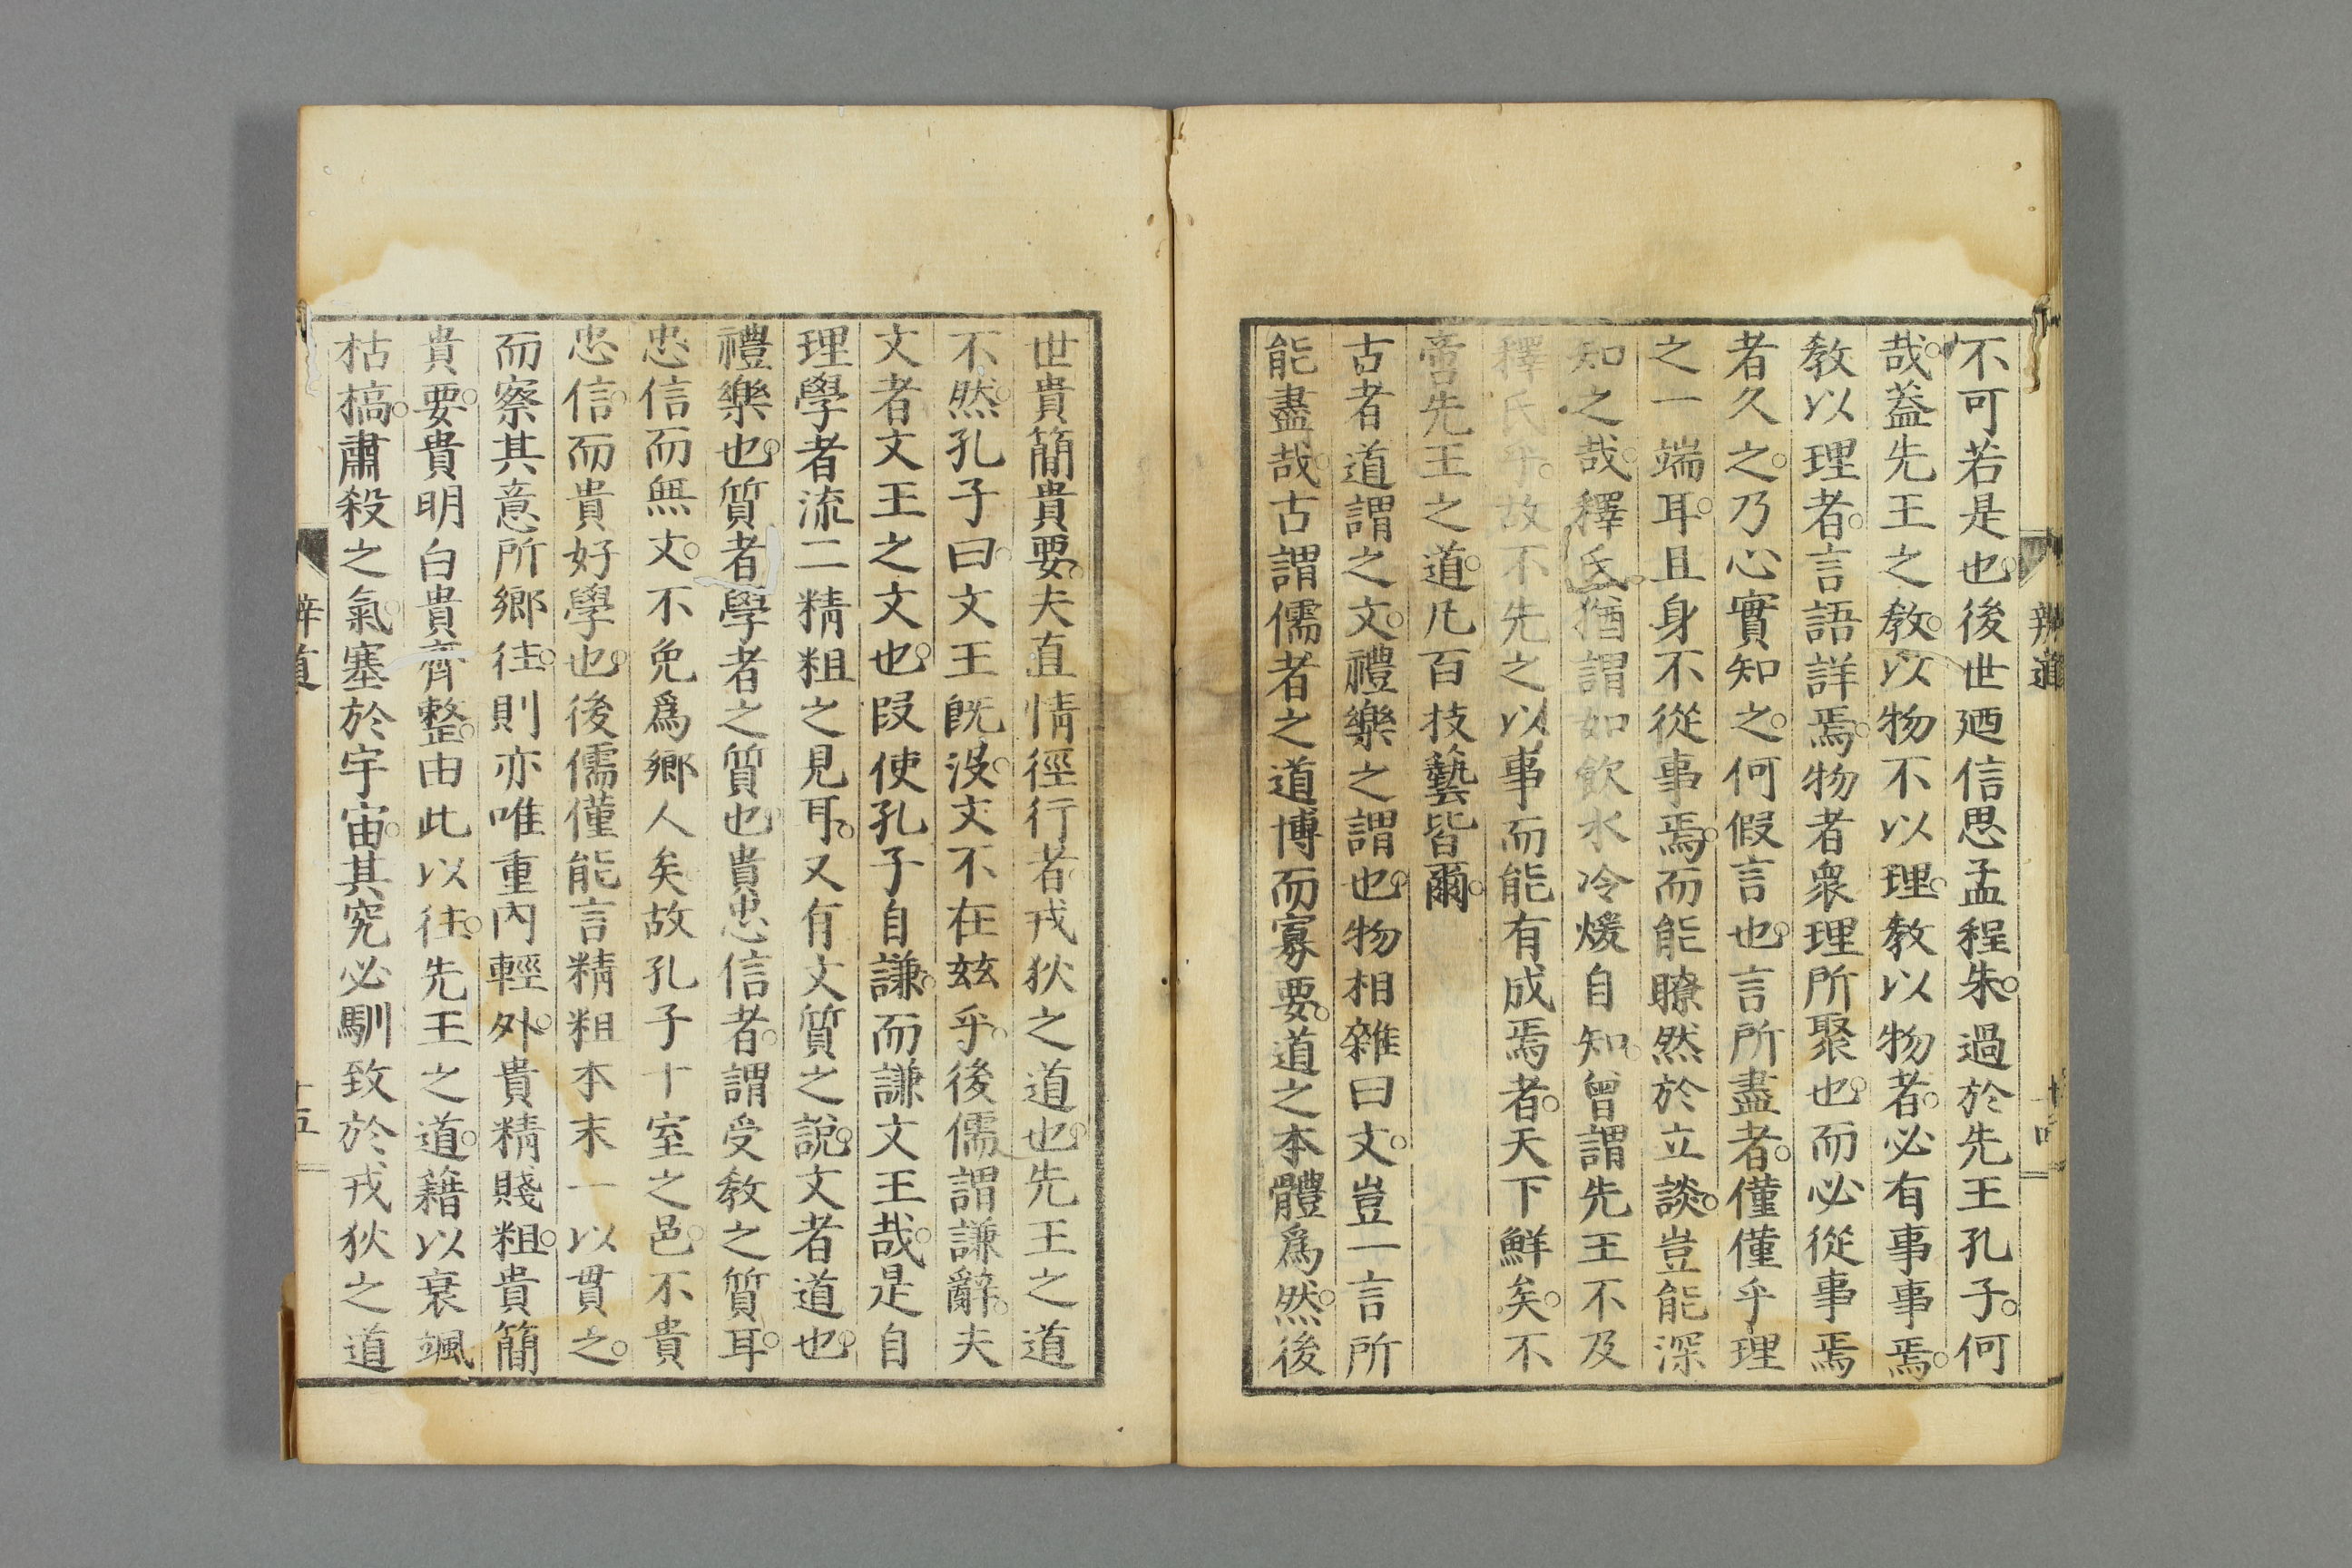 辨道
十四
不可若是也。後世廼信思孟程朱。過於先王孔子。何
哉。葢先王之敎。以物不以理。敎以物者。必有事事焉。
敎以理者。言語詳焉。物者衆理所聚也。而必從事焉
者久之。乃心實知之。何假言也。言所盡者。僅僅乎理
之一端耳。且身不從事焉。而能瞭然於立談。豈能深
知之哉。釋氏。猶謂如飮水冷煖自知。曾謂先王不及
釋氏乎。故不先之以事而能有成焉者。天下鮮矣。不
啻先王之道。凡百技藝皆爾。
古者道謂之文。禮樂之謂也。物相雜曰文。豈一言所
能盡哉。古謂儒者之道博而寡要。道之本體爲然。後
世貴簡貴要。夫直情徑行者。戎狄之道也。先王之道
不然。孔子曰。文王旣沒。文不在玆乎。後儒謂謙辭。夫
文者文王之文也。叚使孔子自謙。而謙文王哉。是自
理學者流二精粗之見耳。又有文質之說。文者道也。
禮樂也。質者學者之質也。貴忠信者。謂受敎之質耳。
忠信而無文。不免爲鄉人矣。故孔子十室之邑。不貴
忠信。而貴好學也。後儒僅能言精粗本末一以貫之。
而察其意所鄉往。則亦唯重內輕外。貴精賤粗。貴簡
貴要。貴明白貴齊整。由此以往。先王之道。藉以衰颯
枯槁。肅殺之氣。塞於宇宙。其究必馴致於戎狄之道
辨道
十五